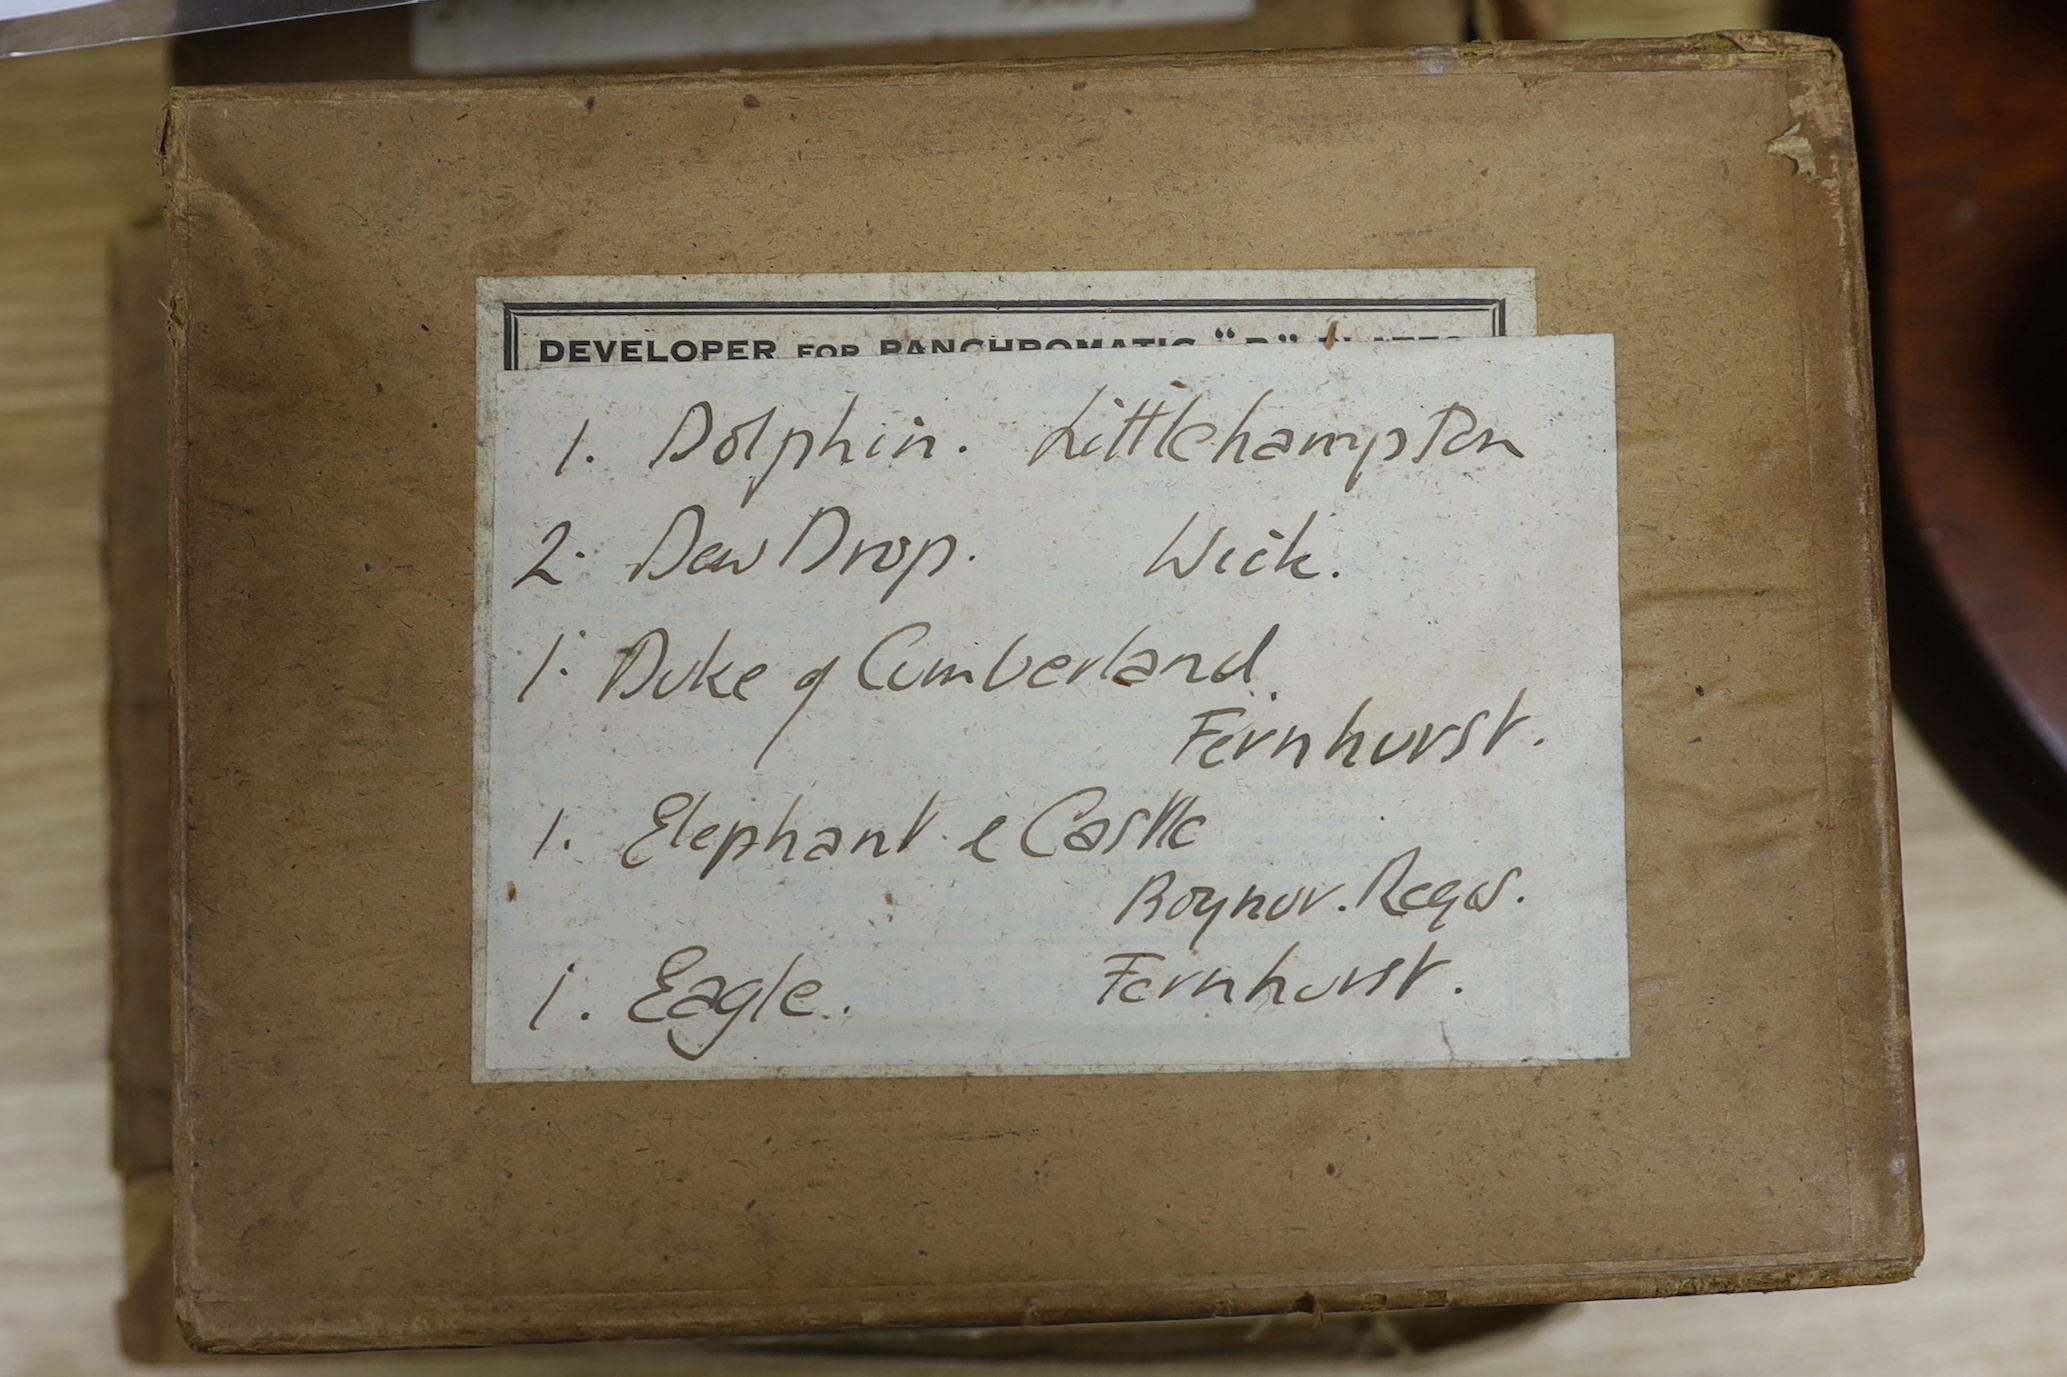 DEVELOPER FOR PANCHROMATIC "B" PLATES
1. Dolphin. Littlehampton
2. Dew Drop. Wick.
1. Duke of Cumberland
Fernhurst.
1. Elephant & Castle
Bognor. Regis.
1. Eagle. Fernhurst.